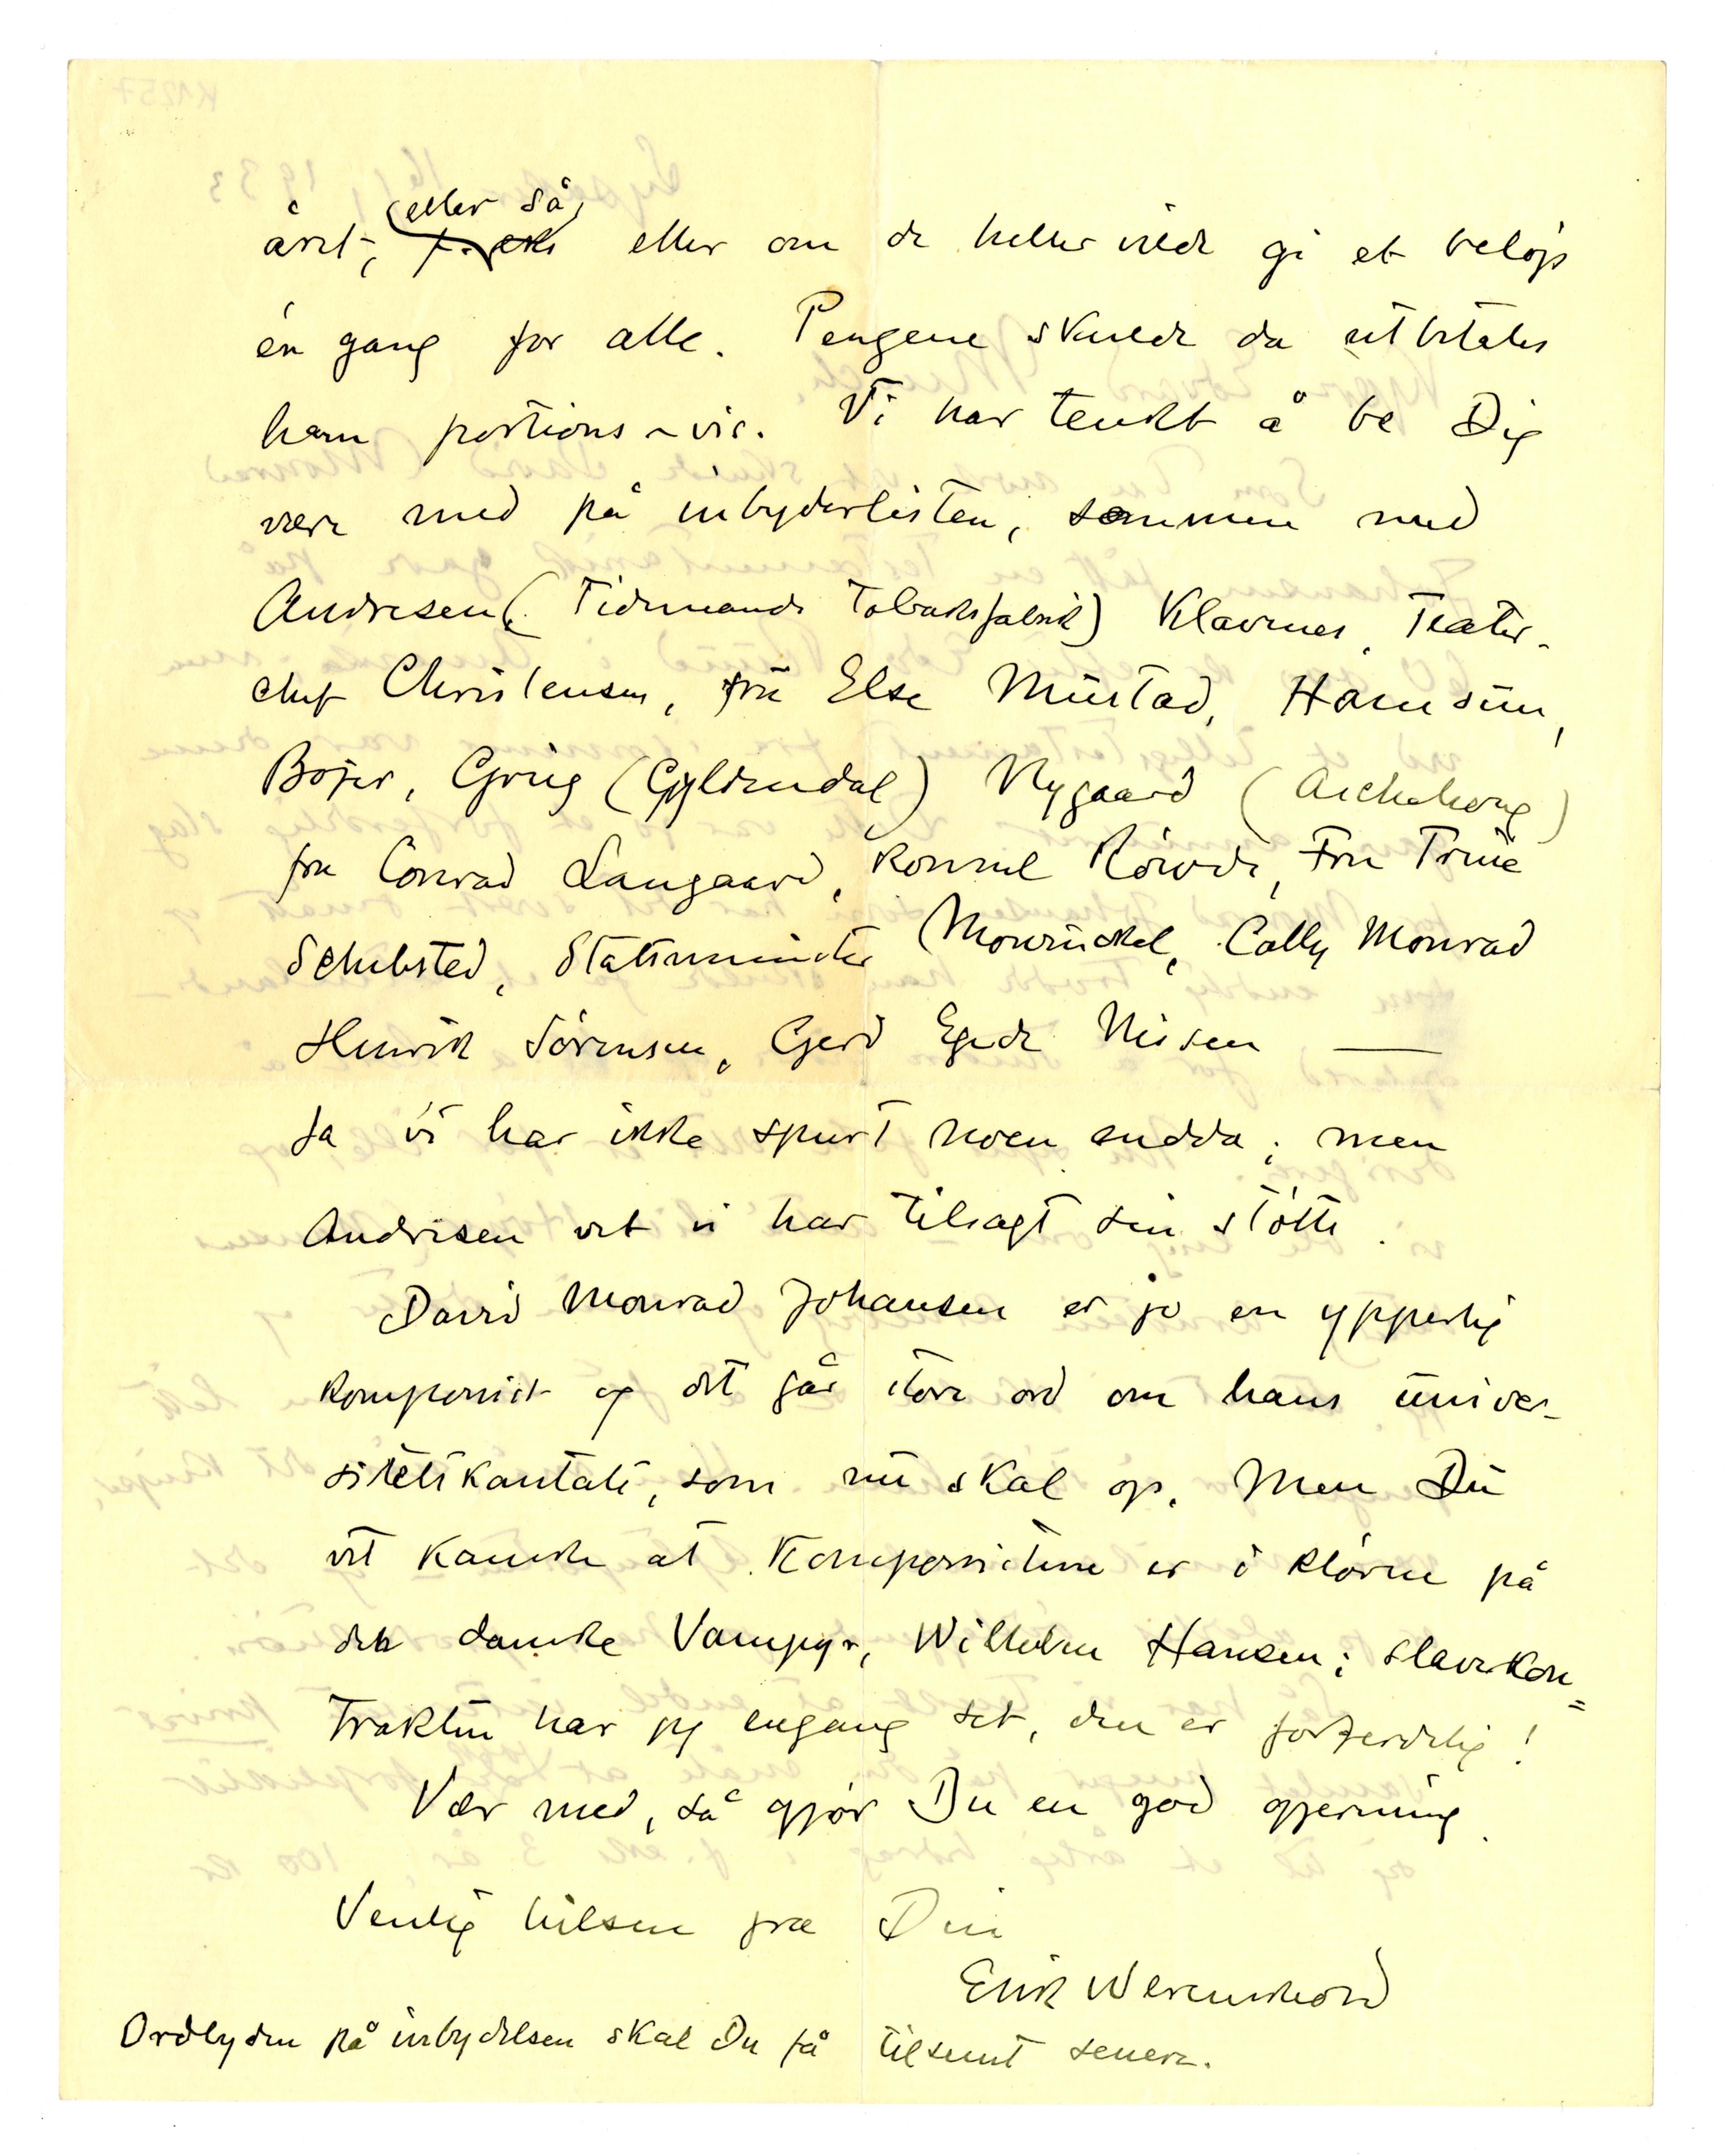 (eller så)
året, f. eks eller om de heller vilde gi et beløp
én gang for alle. Pengene skulde da utbetales
ham portions-vis. Vi har tenkt å be Dig
være med på inbyderlisten, sammen med
Andresen (Tidemands Tobaksfabrik) Klavenes, Teater-
chef Christensen, fru Else Mustad, Hamsun,
Bojer, Grieg (Gyldendal) Nygaard (Aschehoug)
fru Conrad Langaard, Konsul Röwde, Fru Trine
Schibsted, Statsminister Mowinckel, Cally Monrad
Henrik Sörensen, Gerd Egede Nissen —
Ja vi har ikke spurt noen endda; men
Andresen vet vi har tilsagt sin støtte.
David Monrad Johansen er jo en ypperlig
komponist og det går store ord om hans univer-
sitetskantate, som nu skal op. Men Du
vet kanske at komponistene er i klørne på
den danske Vampyr, Wilhelm Hansen; slavekon=
trakten har jeg engang set, den er forferdelig!
Vær med, så gjør Du en god gjerning.
Venlig hilsen fra Din
Erik Werenskiold
Ordlyden på inbydelsen skal Du få tilsent senere.